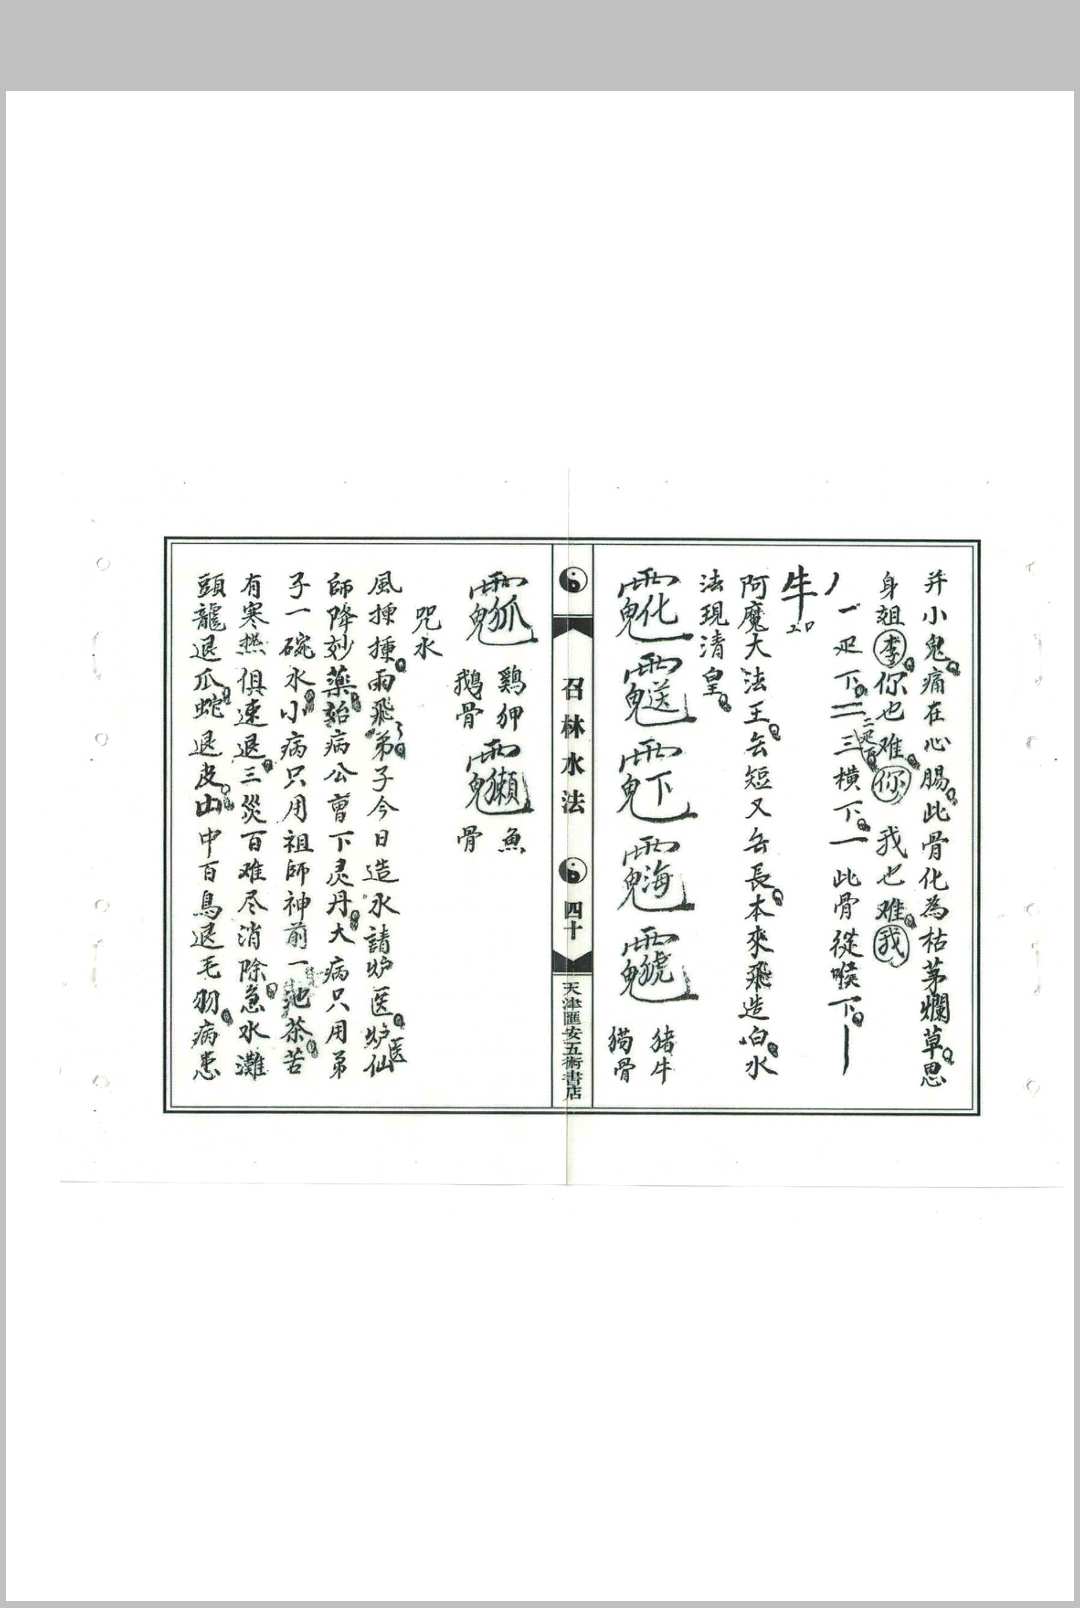 并小鬼痛在心腸此骨化為枯茅爛草思
身䢐李你也难你我也难我
一疋下二三橫下一此骨從喉下
二疋下
牛
阿魔大法王缶短又缶長本來飛造白水
法現清皇
化
送
下
海
猪牛
猫骨
召林水法
四十
天津匯安五術書店
狐
鷄
鵝骨
獺
魚
骨
咒水
風揰揰雨飛弟子今日造水請炉医炉仙
医
師降妙藥治病公曹下灵丹大病只用弟
子一碗水小病只用祖師神前一池茶苦
有寒熱俱速退三災百难尽消除急水灘
頭龍退爪蛇退皮山中百鳥退毛羽病患